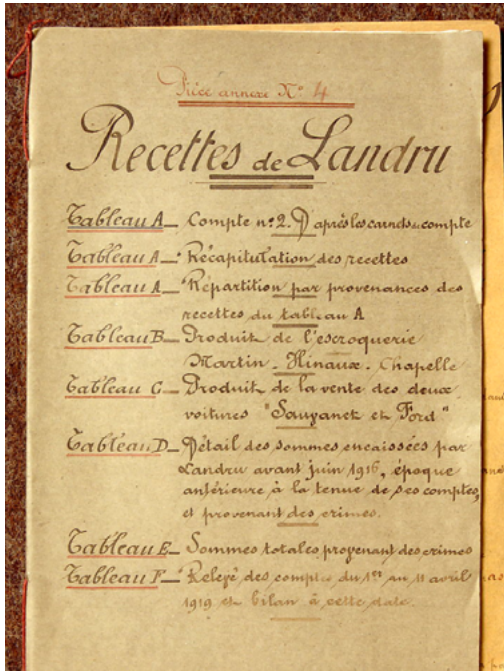 Pièce annexe N° 4
Recettes de Landru
Tableau A_ Compte n° 2. D'après les carnets de compte
Tableau A_ Récapitulation des recettes
Tableau A_ Répartition par provenances des
recettes du tableau A
Tableau B_ Produit de l'escroquerie
Martin_Hinaux_Chapelle
Tableau C_ Produit de la vente des deux
voitures "Sauzanet et Ford"
Tableau D_ Détail des sommes encaissées par
Landru avant juin 1916, époque
antérieure à la tenue de ses comptes,
et provenant des crimes.
Tableau E_ Sommes totales provenant des crimes
Tableau F_ Relevé des comptes du 1er au 11 avril
1919 et bilan à cette date.